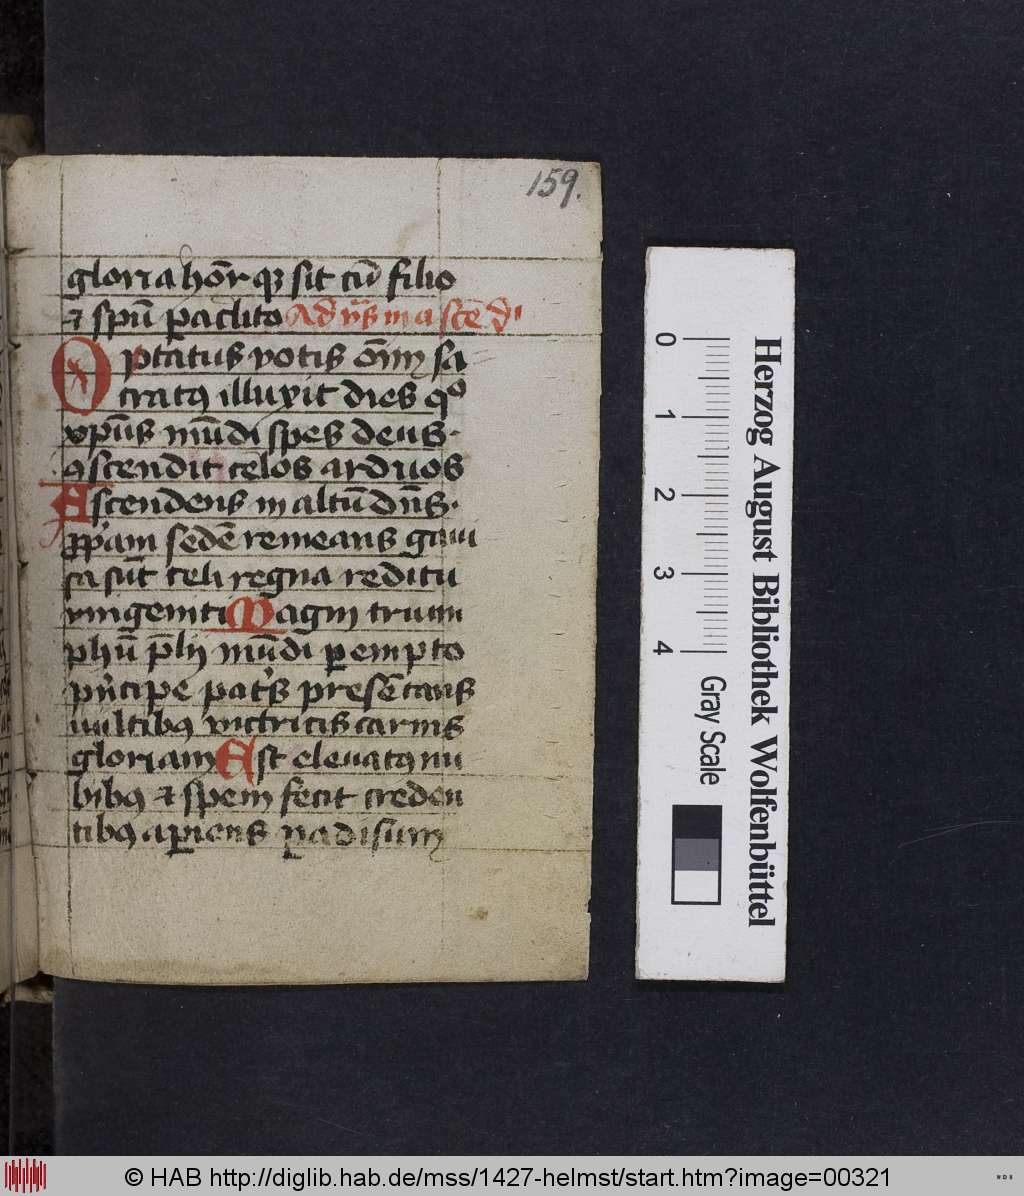 159.
gloria honꝛ qꝫ sit cū filio
⁊ spū ꝑaclito Ad vꝰs in ascēd
Optatus votis oīm sa
cratꝰ illuxit dies qͦ
xpūs mūdi spes deus·
ꝯscendit celos arduos
Ascendens in altū dn̄s·
ꝓp̄am sedē remeans gaui
sa sūt celi regna reditu
vnigeniti Magni trium
phū p̄lij mūdi ꝑempto
pn̄cipe pat̓s presētans
vultibꝰ victricis carnis
gloriam Est eleuatꝰ nu
bibꝰ ⁊ spem fecit creden
tibꝰ aꝑiens ꝑadisum
0 1 2 3 4
Gray Scale
Herzog August Bibliothek Wolfenbüttel
© HAB http://diglib.hab.de/mss/1427-helmst/start.htm?image=00321